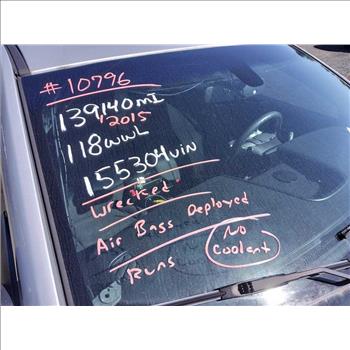 #10796
139140mI
2015
118WWL
155304vin
Wrecked
Air Bags Deployed
Runs
No
Coolant